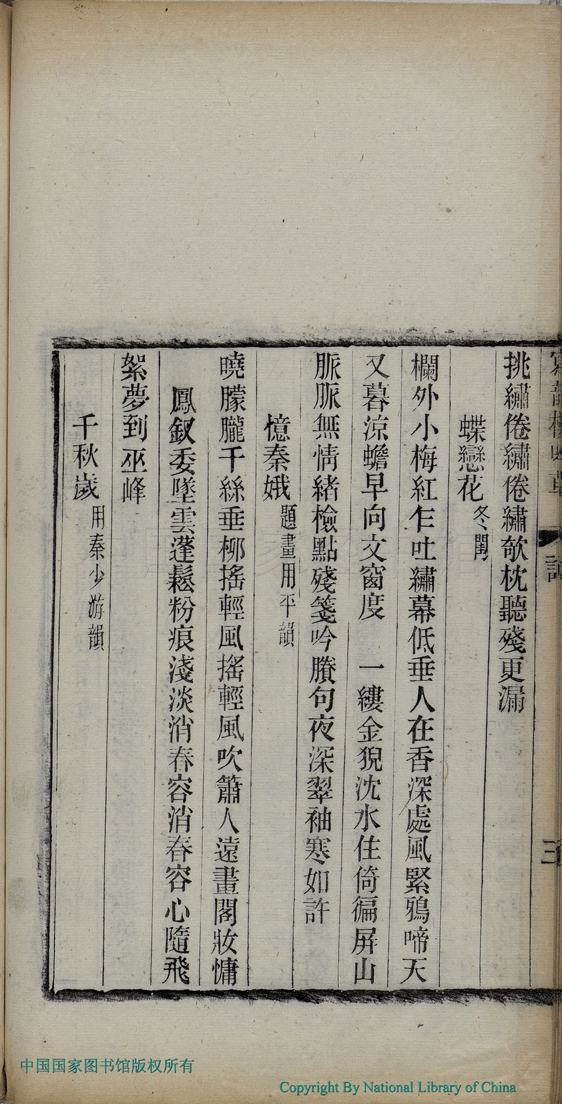 挑繡倦繡倦繡欹枕聽殘更漏
蝶戀花 冬閨
欄外小梅紅乍吐繡幕低垂人在香深處風緊鴉啼天
又暮涼蟾早向文窗度 一縷金猊沈水住倚徧屏山
脈脈無情緒檢點殘箋吟賸句夜深翠袖寒如許
憶秦娥 題畫用平韻
曉朦朧千絲垂柳搖輕風搖輕風吹簫人遠畫閣妝慵
鳳釵委墜雲蓬鬆粉痕淺淡消春容消春容心隨飛
絮夢到巫峰
千秋歲 用秦少游韻
中国国家图书馆版权所有
Copyright By National Library of China